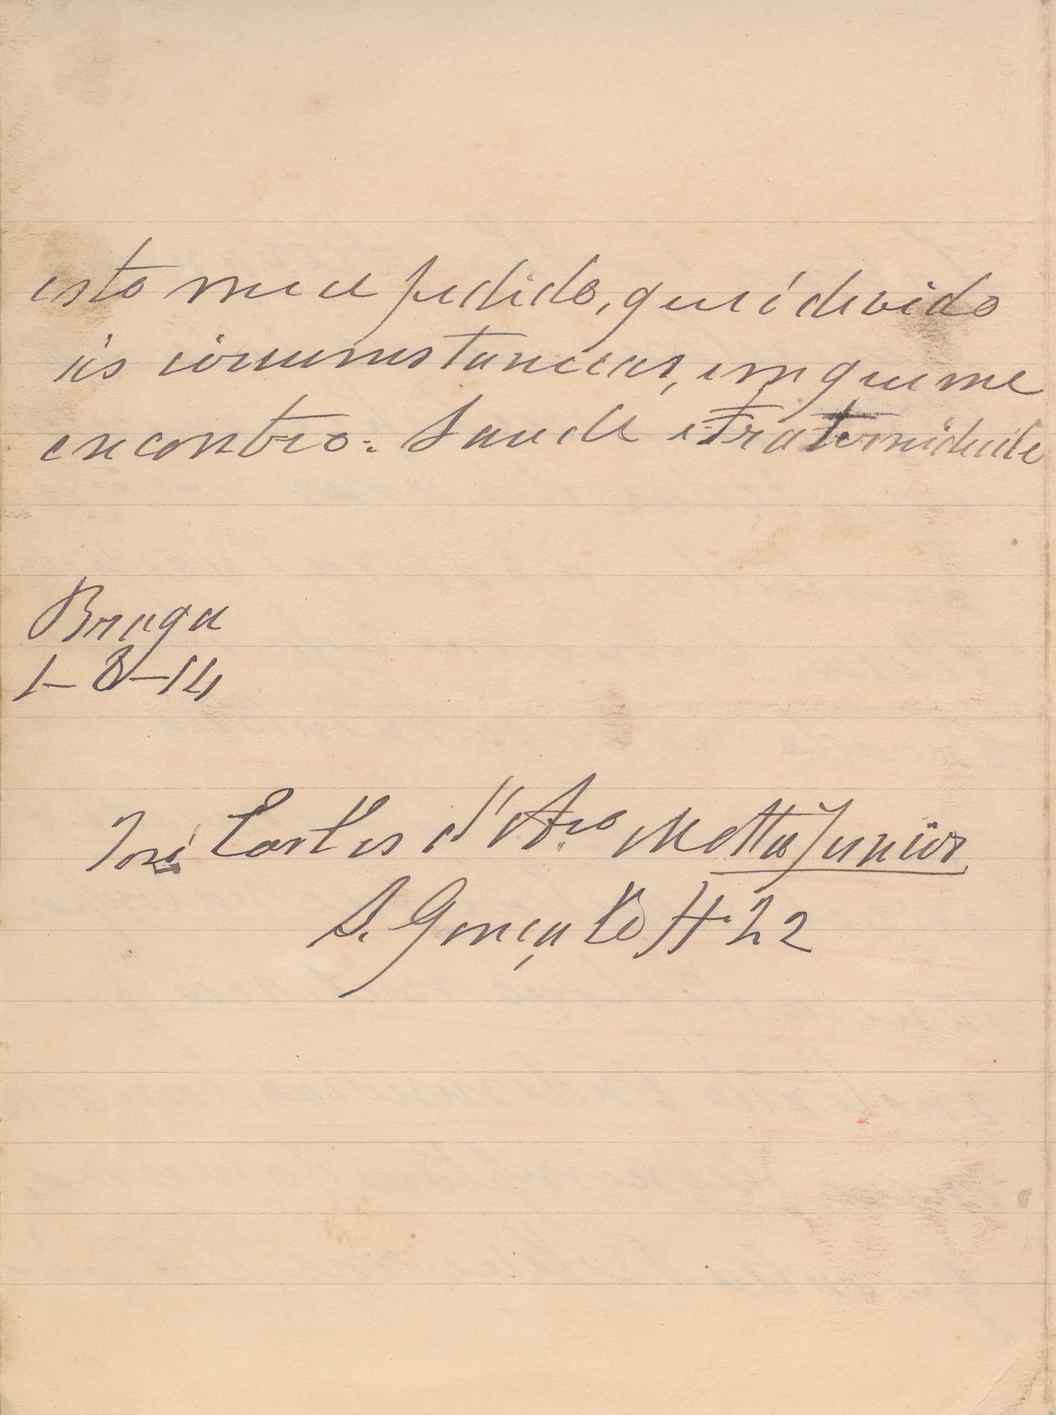 esto meu pedido, que é devido
ás circumstancias, em que me
encontro: Saude e Fraternidade
Braga
1-8-14
José Carlos d'Aro Motta Junior
S. Gonçalo 22